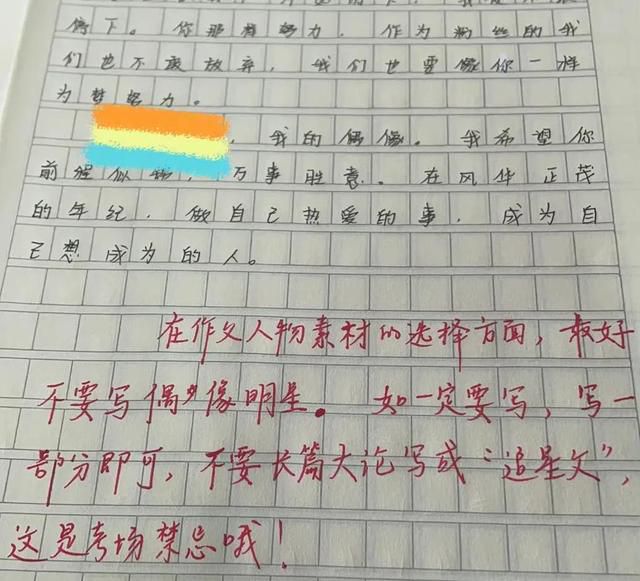 停下。你那样努力,作为粉丝的我
们也不敢放弃,我们也要像你一样
为梦努力。
,我的偶像。我希望你
前程似锦,万事胜意。在风华正茂
的年纪,做自己热爱的事,成为自
己想成为的人。
在作文人物素材的选择方面,最好
不要写偶像明星。如一定要写,写一
部分即可,不要长篇大论写成“追星文”,
这是考场禁忌哦!